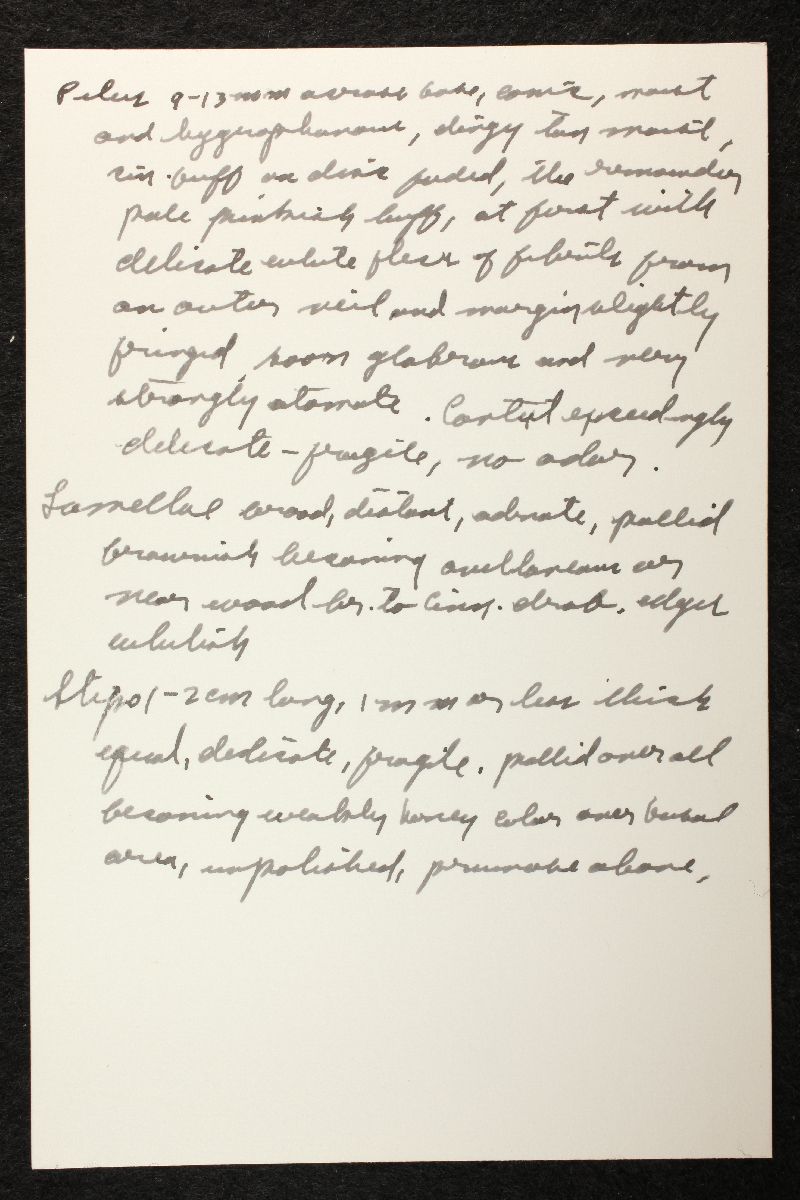 Pileus 9-13 mm across base, conic, moist
and hygrophanous, dingy tan moist,
cin. buff on disc faded, the remainder
pale pinkish buff, at first with
delicate white flecks of fibrils from
an outer veil and margin slightly
fringed, soon glabrous and very
strongly atomate. Context exceedingly
delicate - fragile, no odor.
Lamellae broad, distant, adnate, pallid
brownish becoming avellaneous or
near wood br. to cinn. drab. edges
whitish
Stipe 1-2 cm long, 1 mm or less thick
equal, delicate, fragile. pallid over all
becoming weakly honey color over basal
area, unpolished, pruinose above,